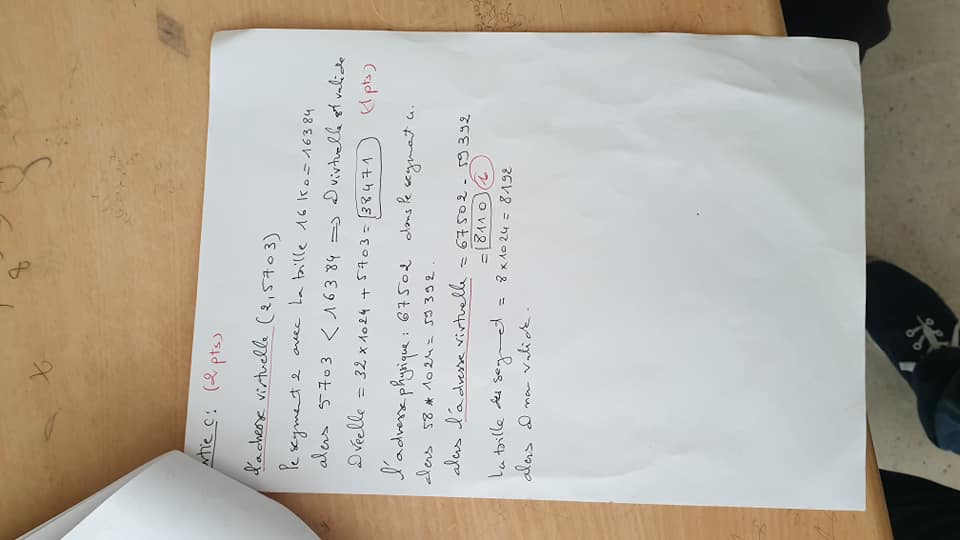 rtie c: (2 pts)
l'adresse virtuelle (2,5703)
le segment 2 avec la taille 16 Ko = 16384
alors 5703 < 16384 ⇒ @virtuelle est valide
@reelle = 32 × 1024 + 5703 = 38471 (1 pts)
l'adresse physique : 67502 dans le segment 4.
alors 58 * 1024 = 59392.
alors l'adresse virtuelle = 67502 - 59392
= 8110
La taille des segmet = 8 × 1024 = 8192
alors @ non valide.